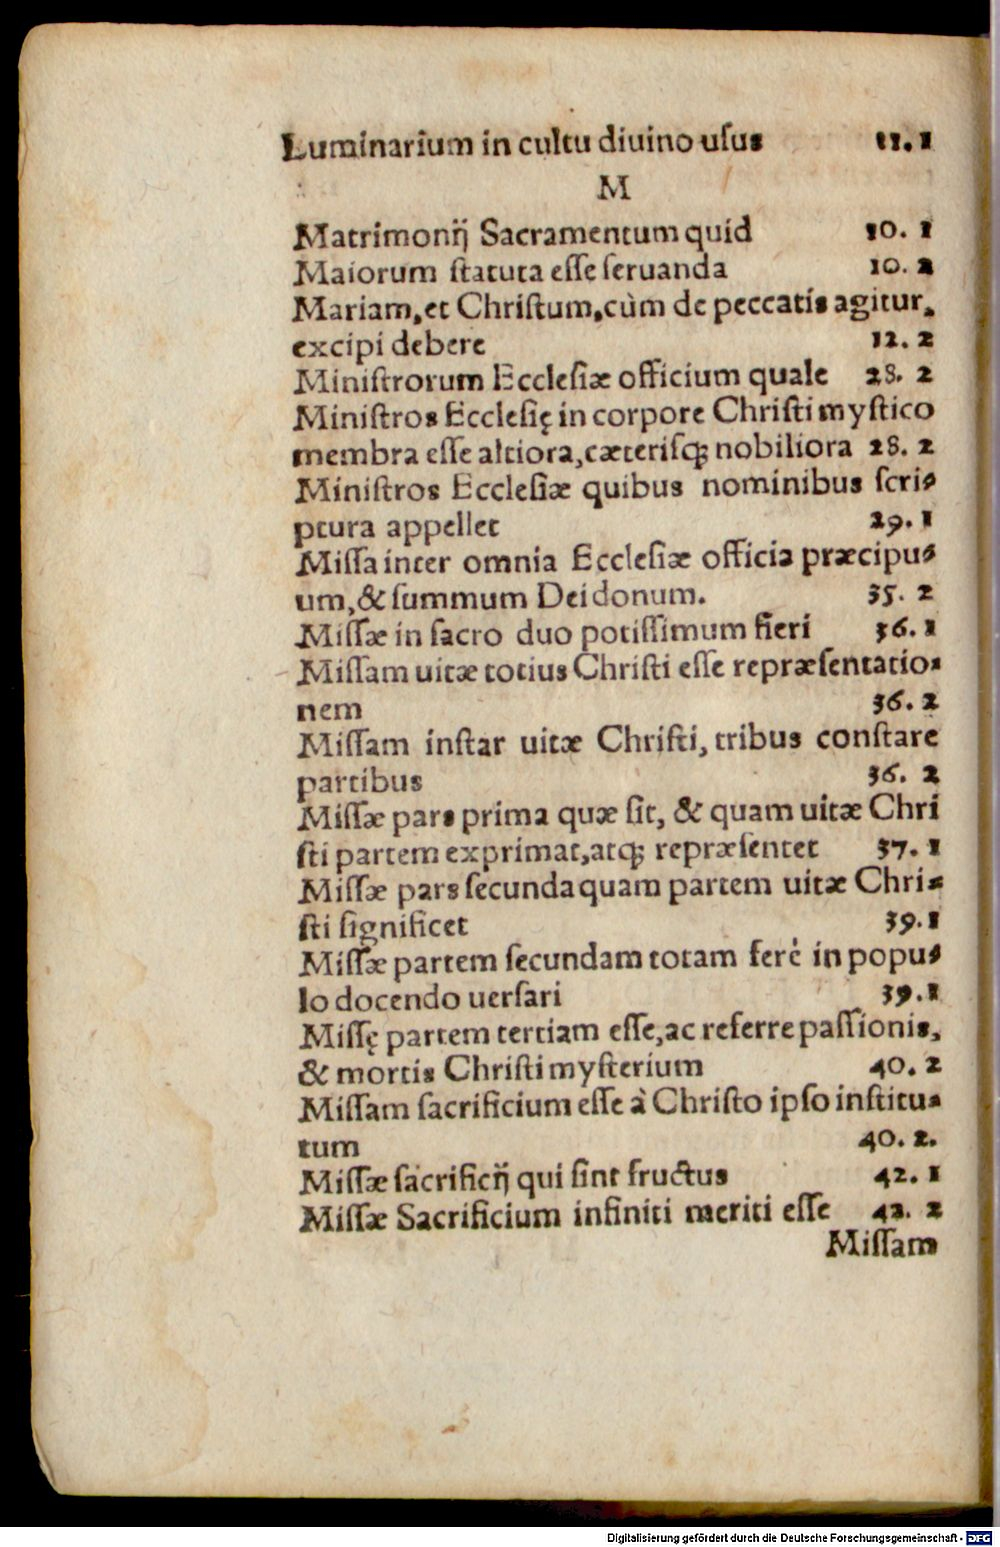 Luminarium in cultu diuino uſus 11. 1
M
Matrimonij Sacramentum quid 10. 1
Maiorum ſtatuta eſſe ſeruanda 10. 2
Mariam, et Chriſtum, cùm de peccatis agitur,
excipi debere 12. 2
Miniſtrorum Eccleſiæ officium quale 28. 2
Miniſtros Eccleſię in corpore Chriſti myſtico
membra eſſe altiora, cæteriſq; nobiliora 28. 2
Miniſtros Eccleſiæ quibus nominibus ſcri-
ptura appellet 29. 1
Miſſa inter omnia Eccleſiæ officia præcipu-
um, & ſummum Dei donum. 35. 2
Miſſæ in ſacro duo potiſſimum fieri 36. 1
Miſſam uitæ totius Chriſti eſſe repræſentatio-
nem 36. 2
Miſſam inſtar uitæ Chriſti, tribus conſtare
partibus 36. 2
Miſſæ pars prima quæ ſit, & quam uitæ Chri
ſti partem exprimat, atq; repræſentet 37. 1
Miſſæ pars ſecunda quam partem uitæ Chri-
ſti ſignificet 39. 1
Miſſæ partem ſecundam totam ferè in popu-
lo docendo uerſari 39. 1
Miſſę partem tertiam eſſe, ac referre paſſionis,
& mortis Chriſti myſterium 40. 2
Miſſam ſacrificium eſſe à Chriſto ipſo inſtitu-
tum 40. 2.
Miſſæ ſacrificij qui ſint fructus 42. 1
Miſſæ Sacrificium infiniti meriti eſſe 42. 2
Miſſam
Digitalisierung gefördert durch die Deutsche Forschungsgemeinschaft - DFG